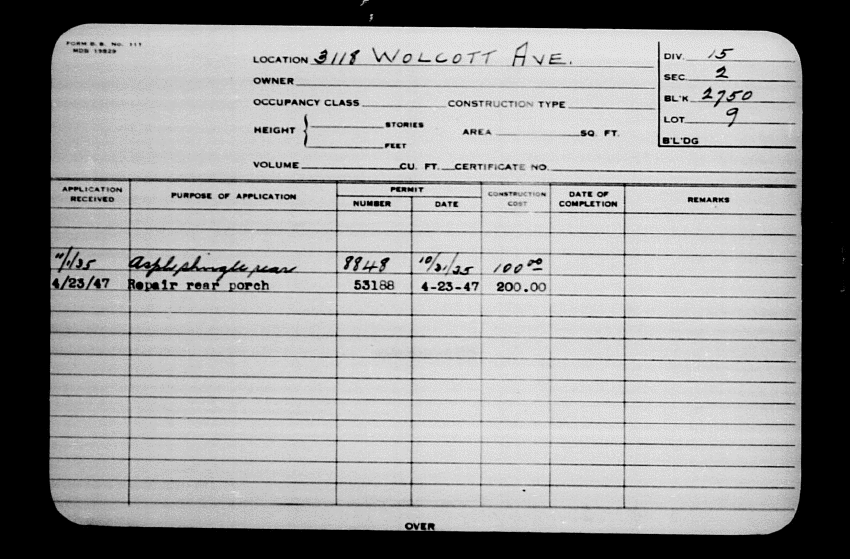 FORM B. B. No. 111
MDB 19829
LOCATION 3118 WOLCOTT AVE.
OWNER
OCCUPANCY CLASS CONSTRUCTION TYPE
HEIGHT { STORIES
FEET
AREA SQ. FT.
VOLUME CU. FT. CERTIFICATE NO.
DIV. 15
SEC. 2
BL'K 2750
LOT 9
B'L'DG
APPLICATION RECEIVED PURPOSE OF APPLICATION PERMIT NUMBER DATE CONSTRUCTION COST DATE OF COMPLETION REMARKS
11/1/35 Asph shingle rear 8848 10/31/35 100.00
4/23/47 Repair rear porch 53188 4-23-47 200.00
OVER